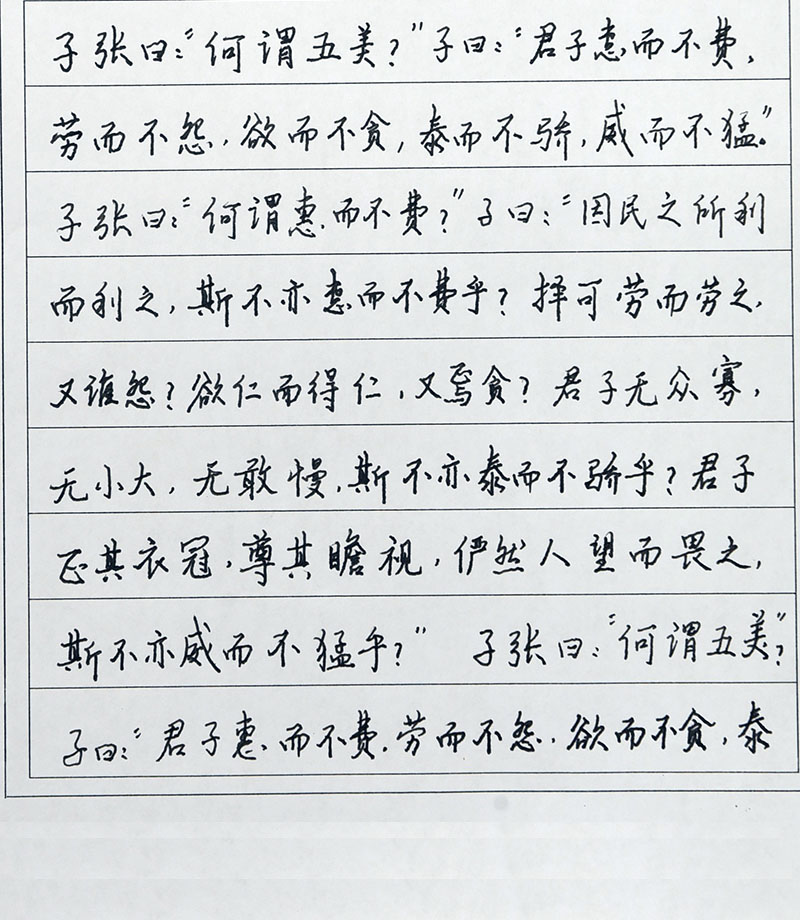 子张曰：“何谓五美？”子曰：“君子惠而不费，
劳而不怨，欲而不贪，泰而不骄，威而不猛。”
子张曰：“何谓惠而不费？”子曰：“因民之所利
而利之，斯不亦惠而不费乎？择可劳而劳之，
又谁怨？欲仁而得仁，又焉贪？君子无众寡，
无小大，无敢慢，斯不亦泰而不骄乎？君子
正其衣冠，尊其瞻视，俨然人望而畏之，
斯不亦威而不猛乎？” 子张曰：“何谓五美”？
子曰：“君子惠而不费，劳而不怨，欲而不贪，泰